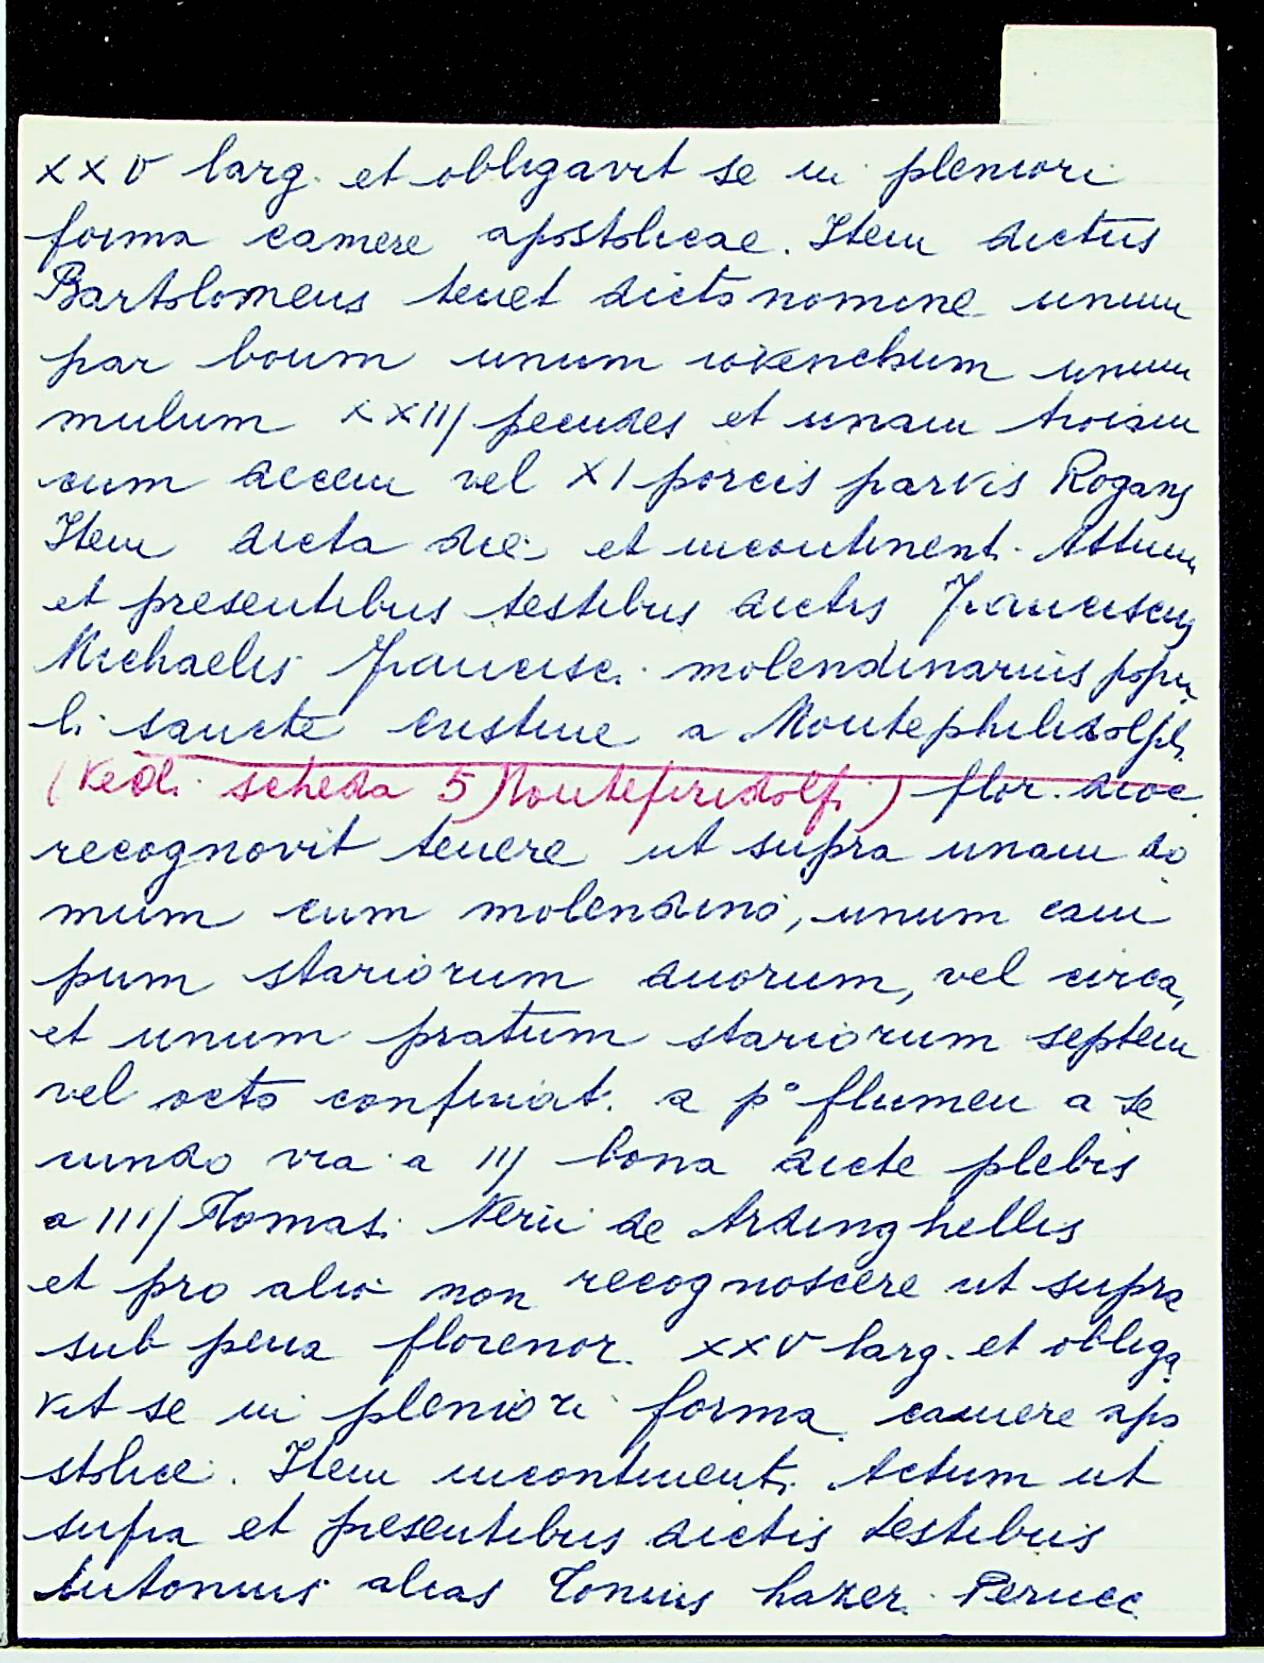 XXV larg. et obligavit se in pleniori
forma camere apostolicae. Item dictus
Bartolomeus tenet dicto nomine unum
par boum unum iovenchum unum
mulum XXIIJ pecudes et unam troiam
cum decem vel XI porcis parvis Rogans
Item dicta die et incontinent. Attum
et presentibus testibus dictis Franciscus
Michaelis Francisc. molendinarius popu
li sancte Cristine a Montephilidolphi
(Vedi scheda 5 Montefiridolfi) flor. dioc
recognovit tenere ut supra unam do
mum cum molendino, unum cam
pum stariorum duorum, vel circa,
et unum pratum stariorum septem
vel octo confiniat. a p° flumen a se
cundo via a IIJ bona dicte plebis
a IIIJ Tomas. Nerii de Ardinghellis
et pro alio non recognoscere ut supra
sub pena florenor. XXV larg. et obliga
vit se in pleniori forma camere apo
stolice. Item incontinent. Actum ut
supra et presentibus dictis testibus
Antonius alias Tonius Perucc